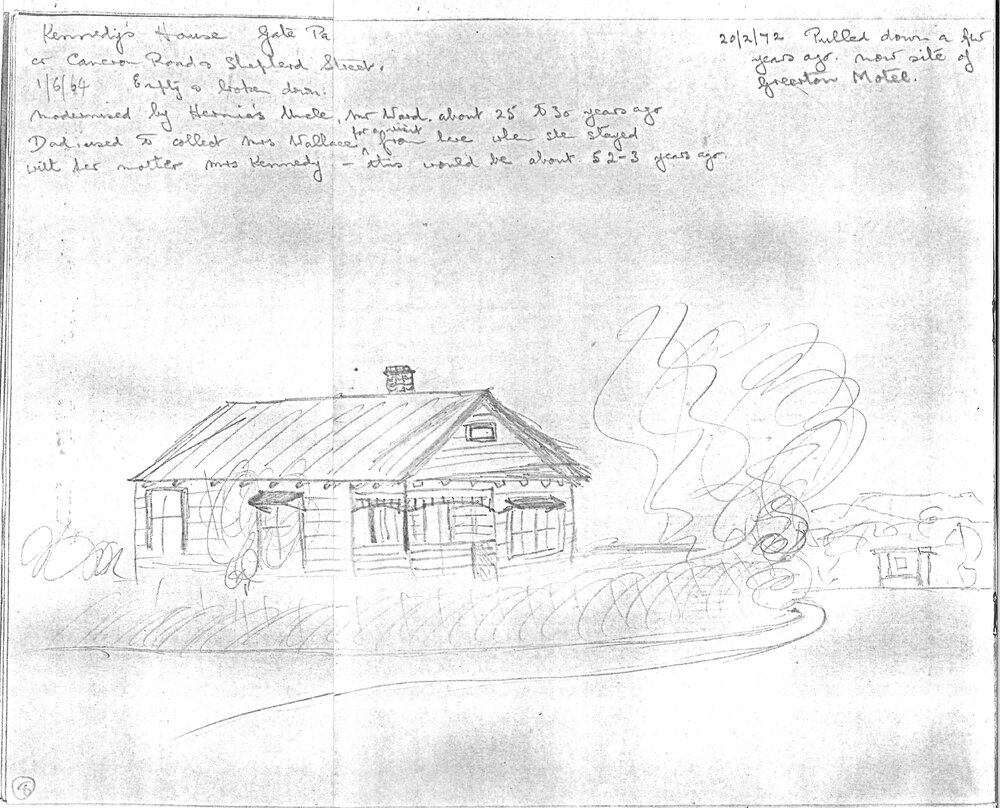 Kennedy's House Gate Pa
cr Cameron Road & Shepherd Street.
1/6/64 Empty & broken down.
modernised by Hernia's Uncle, Mr Ward. about 25 to 30 years ago
Dad used to collect Mrs Wallace from here when she stayed
with her mother Mrs Kennedy - this would be about 52-3 years ago.
20/2/72 Pulled down a few
years ago. now site of
Greerton Motel.
8